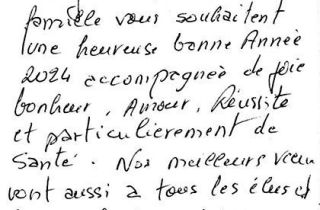 famille vous souhaitent
une heureuse bonne Année
2024 accompagnée de joie
bonheur, Amour, Réussite
et particulièrement de
Santé. Nos meilleurs vœux
vont aussi a tous les élus et